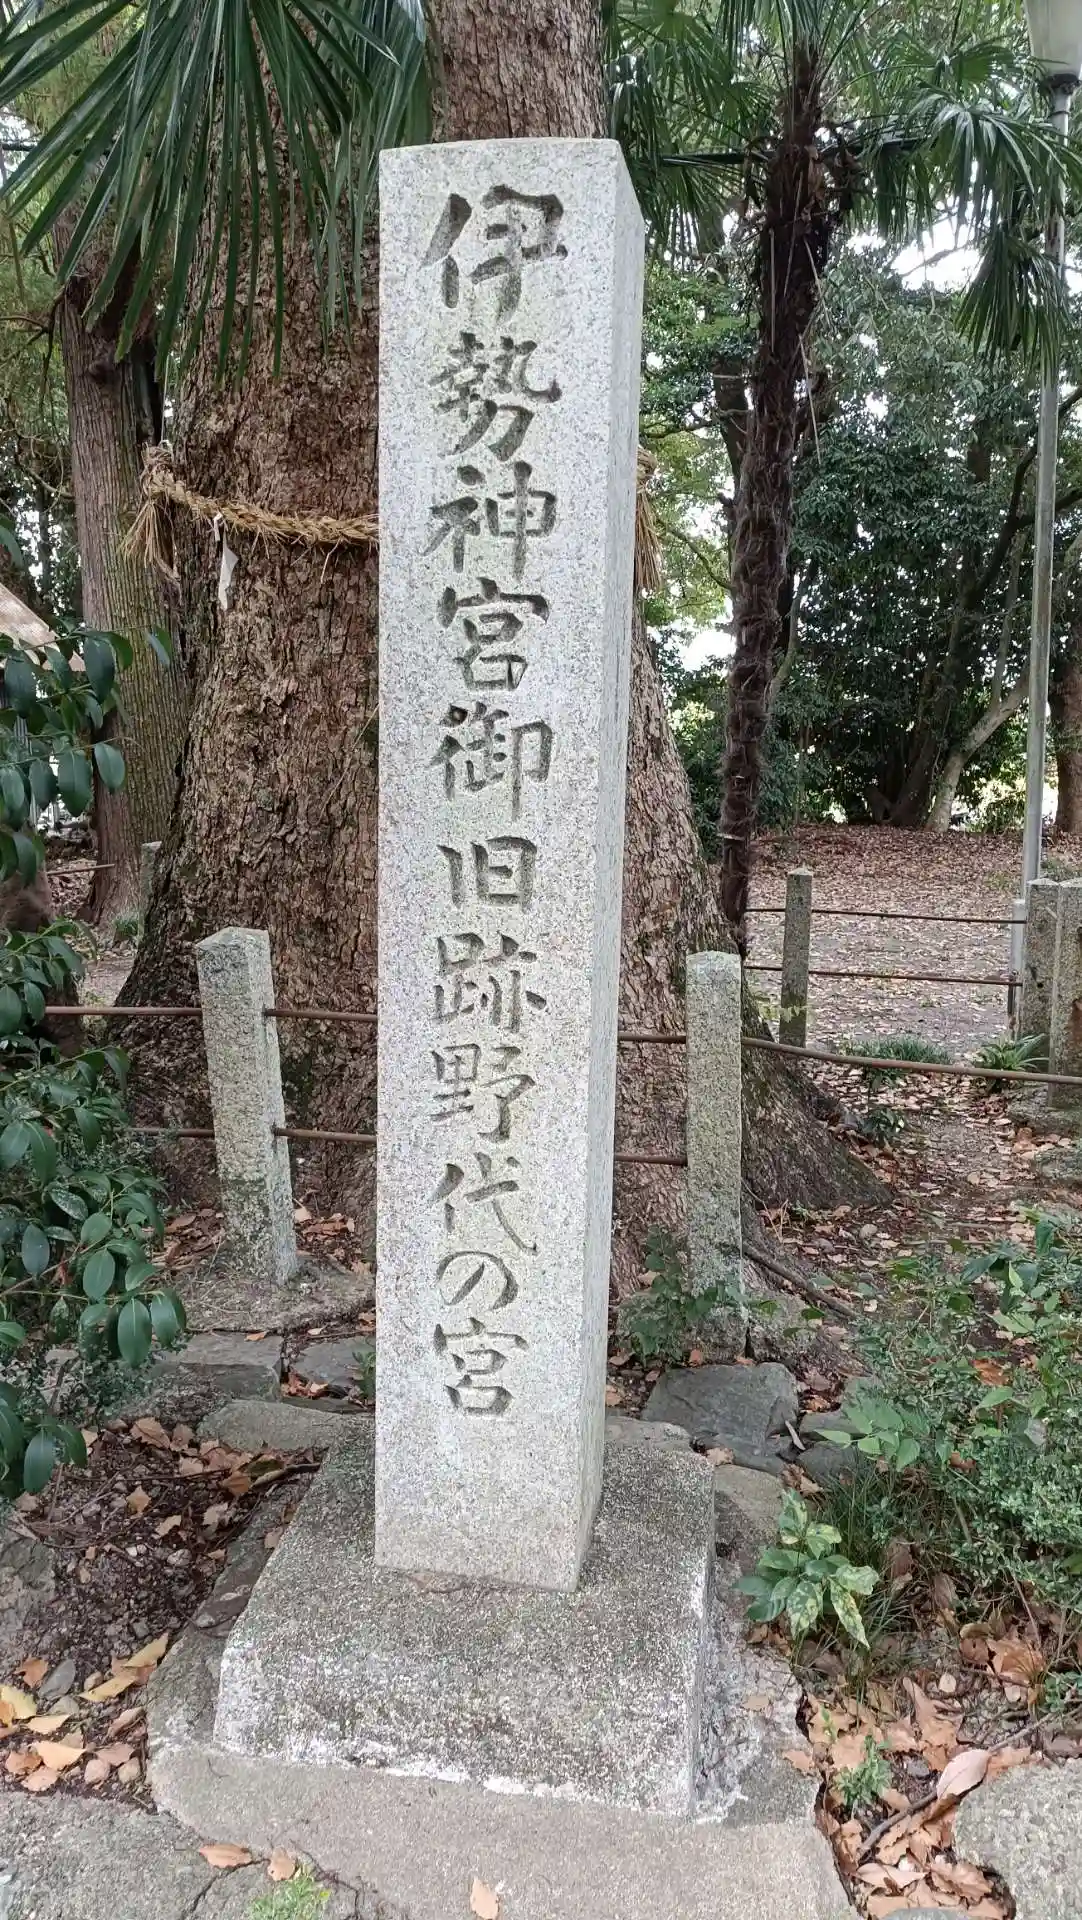 伊勢神宮御旧跡野代の宮